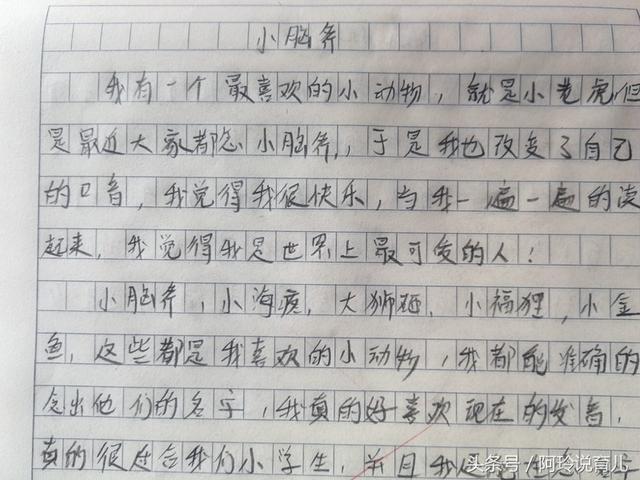 小脑斧
我有一个最喜欢的小动物，就是小老虎，但
是最近大家都念小脑斧，于是我也改变了自己
的口音，我觉得我很快乐，当我一遍一遍的读
起来，我觉得我是世界上最可爱的人！
小脑斧，小海疼，大狮砸，小福狸，小金
鱼，这些都是我喜欢的小动物，我都能准确的
念出他们的名字，我真的好喜欢现在的发音，
真的很适合我们小学生，并且我还
头条号/阿玲说育儿